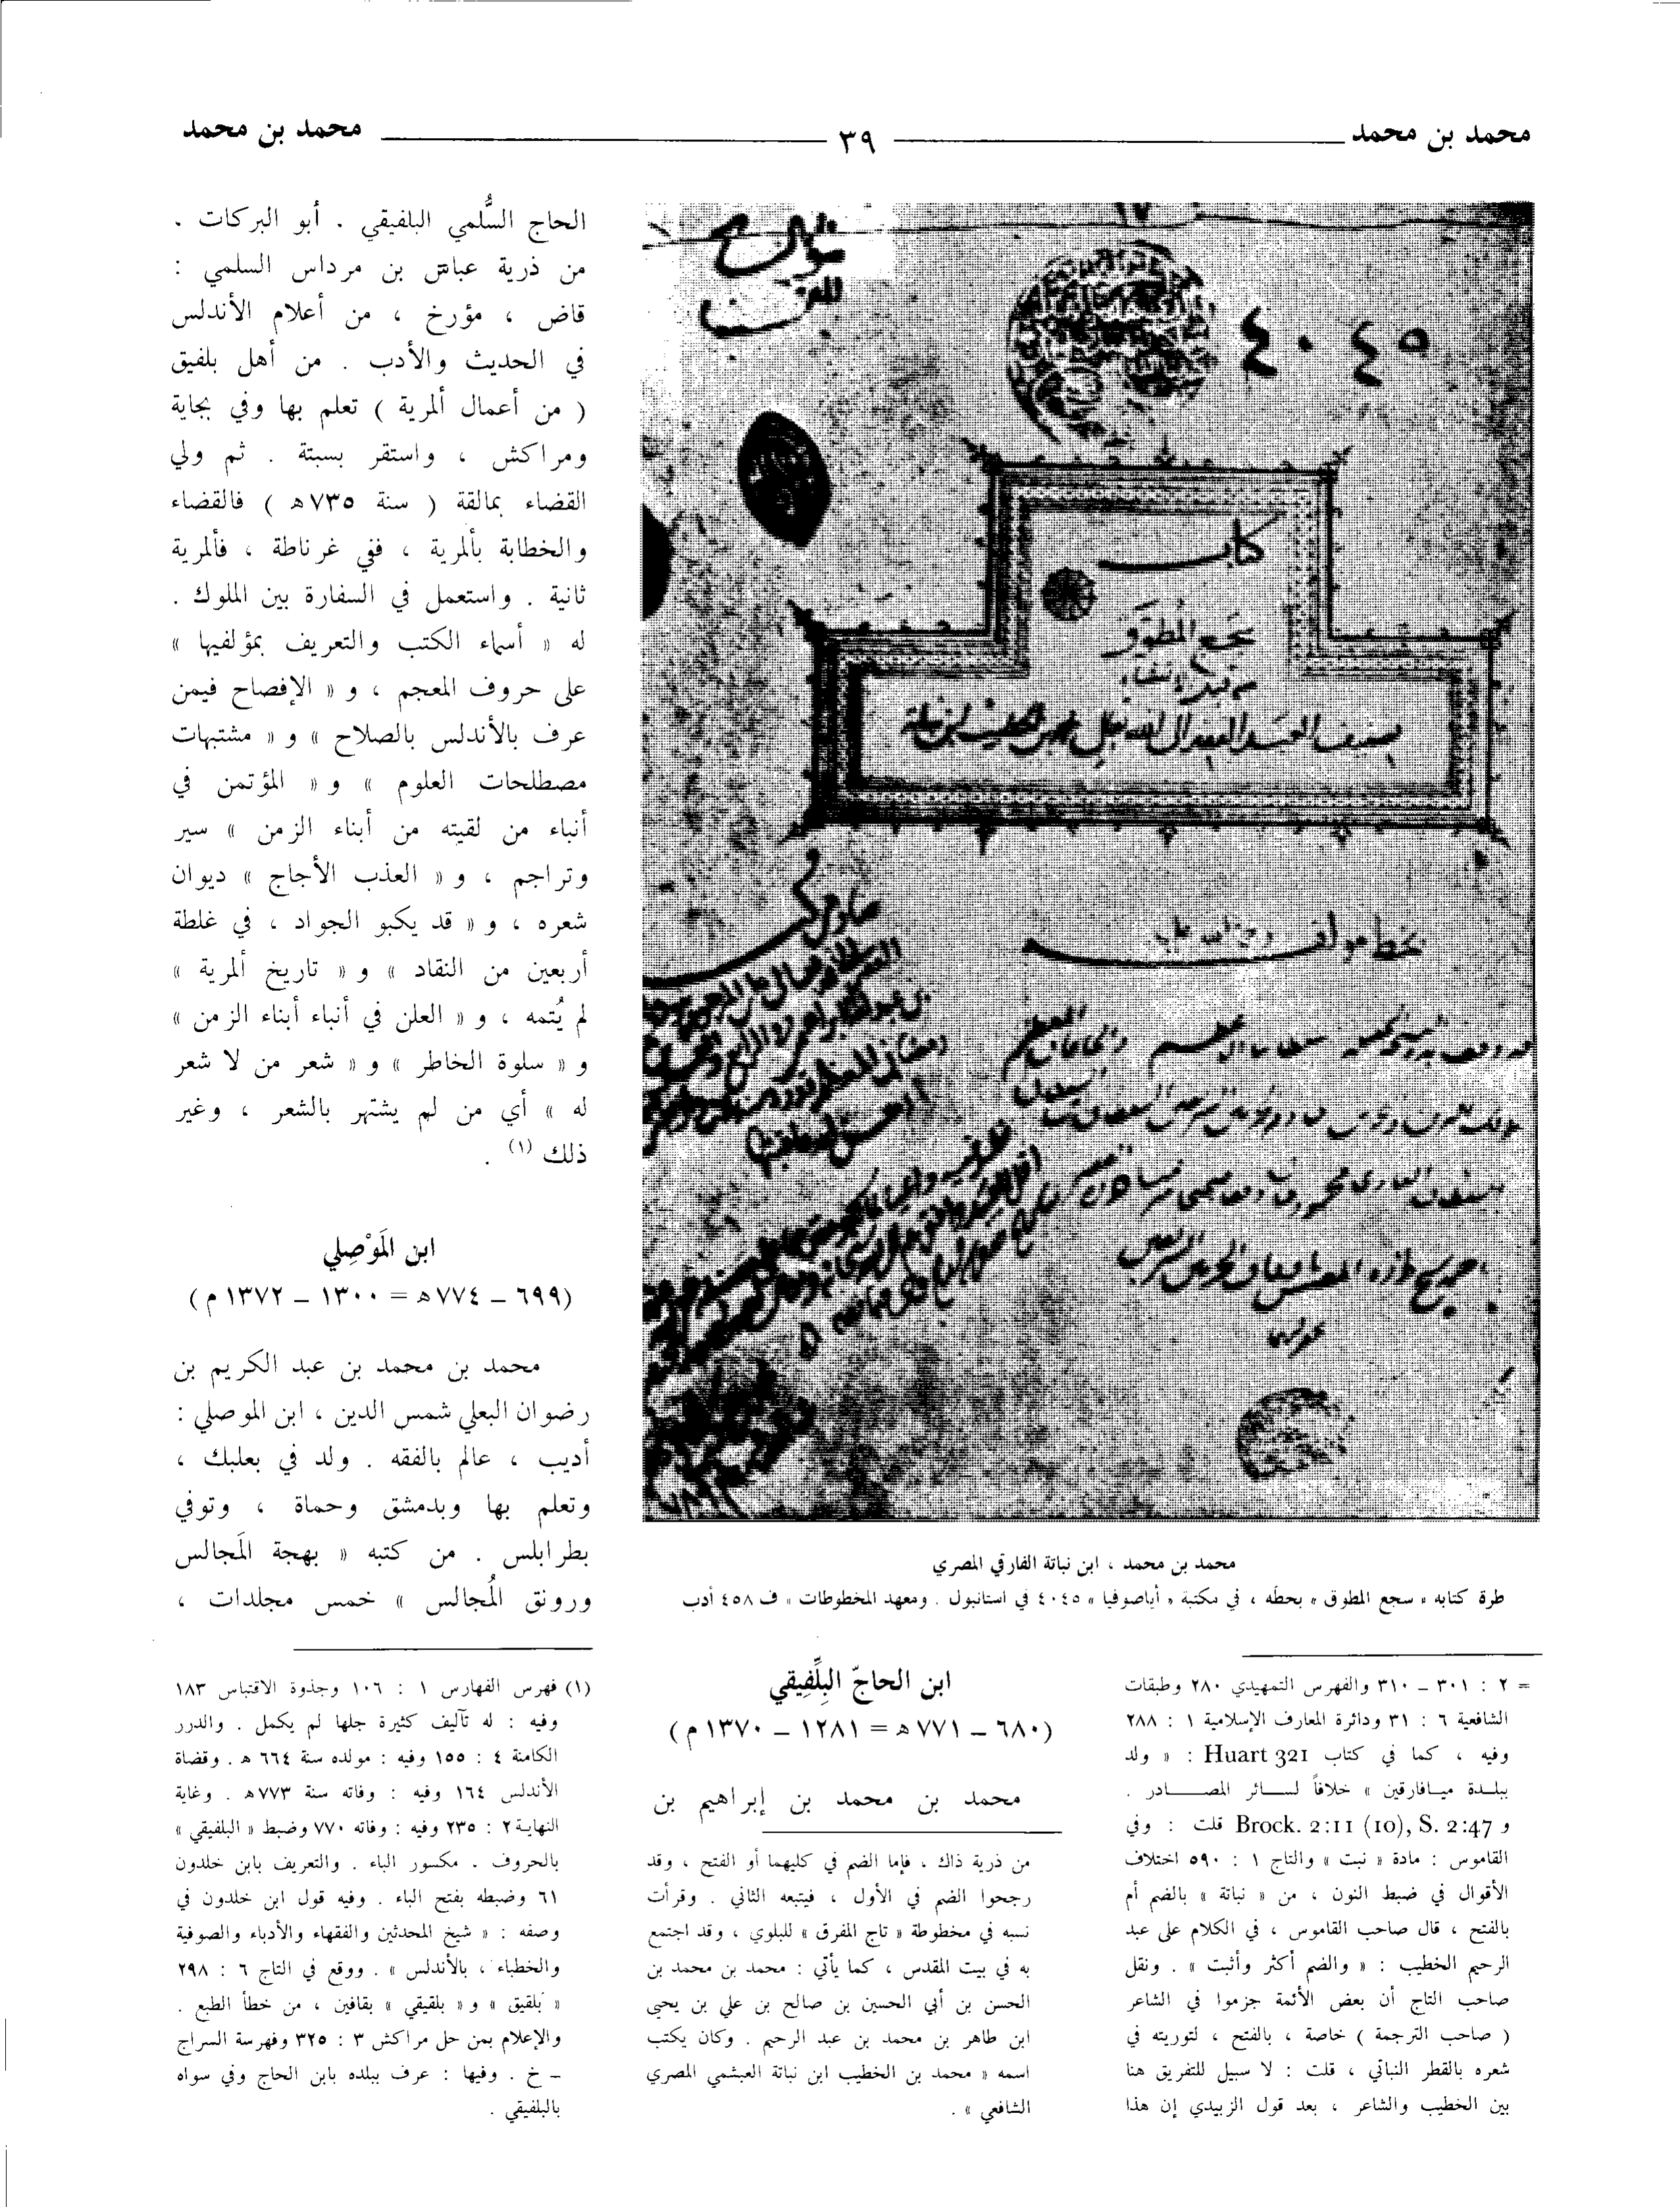 محمد بن محمد
٣٩
محمد بن محمد
٤٠٤٥
كتاب
سجع المطوق
بخط مؤلفه
محمد بن محمد ، ابن نباتة الفارقي المصري
طرة كتابه « سجع المطوق » بخطه ، في مكتبة « أياصوفيا » ٤٠٤٥ في استانبول . ومعهد المخطوطات « ف ٤٥٨ أدب
= ٢ : ٣٠١ – ٣١٠ والفهرس التمهيدي ٢٨٠ وطبقات
الشافعية ٦ : ٣١ ودائرة المعارف الإسلامية ١ : ٢٨٨
وفيه ، كما في كتاب Huart 321 : « ولد
ببلدة ميافارقين » خلافاً لسائر المصادر .
و Brock. 2:11 (10), S. 2:47 قلت : وفي
القاموس : مادة « نبت » والتاج ١ : ٥٩٠ اختلاف
الأقوال في ضبط النون ، من « نباتة » بالضم أم
بالفتح ، قال صاحب القاموس ، في الكلام على عبد
الرحيم الخطيب : « والضم أكثر وأثبت » . ونقل
صاحب التاج أن بعض الأئمة جزموا في الشاعر
( صاحب الترجمة ) خاصة ، بالفتح ، لتوريته في
شعره بالقطر النباتي ، قلت : لا سبيل للتفريق هنا
بين الخطيب والشاعر ، بعد قول الزبيدي إن هذا
من ذرية ذاك ، فإما الضم في كليهما أو الفتح ، وقد
رجحوا الضم في الأول ، فيتبعه الثاني . وقرأت
نسبه في مخطوطة « تاج المفرق » للبلوي ، وقد اجتمع
به في بيت المقدس ، كما يأتي : محمد بن محمد بن
الحسن بن أبي الحسين بن صالح بن علي بن يحيى
ابن طاهر بن محمد بن عبد الرحيم . وكان يكتب
اسمه « محمد بن الخطيب ابن نباتة العبشمي المصري
الشافعي » .
ابن الحاجّ البِلِّفِيقي
( ٦٨٠ – ٧٧١ ه = ١٢٨١ – ١٣٧٠ م )
محمد بن محمد بن إبراهيم بن
الحاج السُّلمي البلفيقي . أبو البركات .
من ذرية عباس بن مرداس السلمي :
قاض ، مؤرخ ، من أعلام الأندلس
في الحديث والأدب . من أهل بلفيق
( من أعمال ألمرية ) تعلم بها وفي بجاية
ومراكش ، واستقر بسبتة . ثم ولي
القضاء بمالقة ( سنة ٧٣٥ ه ) فالقضاء
والخطابة بألمرية ، ففي غرناطة ، فألمرية
ثانية . واستعمل في السفارة بين الملوك .
له « أسماء الكتب والتعريف بمؤلفيها »
على حروف المعجم ، و « الإفصاح فيمن
عرف بالأندلس بالصلاح » و « مشتبهات
مصطلحات العلوم » و « المؤتمن في
أنباء من لقيته من أبناء الزمن » سير
وتراجم ، و « العذب الأجاج » ديوان
شعره ، و « قد يكبو الجواد ، في غلطة
أربعين من النقاد » و « تاريخ ألمرية »
لم يُتمه ، و « العلن في أنباء أبناء الزمن »
و « سلوة الخاطر » و « شعر من لا شعر
له » أي من لم يشتهر بالشعر ، وغير
ذلك (١) .
ابن المَوْصِلي
( ٦٩٩ – ٧٧٤ ه = ١٣٠٠ – ١٣٧٢ م )
محمد بن محمد بن عبد الكريم بن
رضوان البعلي شمس الدين ، ابن الموصلي :
أديب ، عالم بالفقه . ولد في بعلبك ،
وتعلم بها وبدمشق وحماة ، وتوفي
بطرابلس . من كتبه « بهجة المَجالس
ورونق المُجالس » خمس مجلدات ،
(١) فهرس الفهارس ١ : ١٠٦ وجذوة الاقتباس ١٨٣
وفيه : له تآليف كثيرة جلها لم يكمل . والدرر
الكامنة ٤ : ١٥٥ وفيه : مولده سنة ٦٦٤ ه . وقضاة
الأندلس ١٦٤ وفيه : وفاته سنة ٧٧٣ ه . وغاية
النهاية ٢ : ٢٣٥ وفيه : وفاته ٧٧٠ وضبط « البلفيقي »
بالحروف . مكسور الباء . والتعريف بابن خلدون
٦١ وضبطه بفتح الباء . وفيه قول ابن خلدون في
وصفه : « شيخ المحدثين والفقهاء والأدباء والصوفية
والخطباء ، بالأندلس » . ووقع في التاج ٦ : ٢٩٨
« بلقيق » و « بلقيقي » بقافين ، من خطأ الطبع .
والإعلام بمن حل مراكش ٣ : ٣٢٥ وفهرسة السراج
– خ . وفيها : عرف ببلده بابن الحاج وفي سواه
بالبلفيقي .